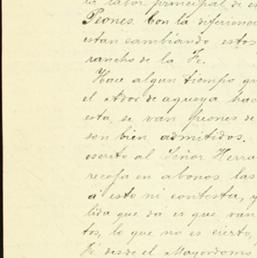 la labor principal de es
Peones. Con la diferencia
estan cambiando estos
rancho de la Fe.
Hace algun tiempo qu
el Ador de aqueya hac
esta, se van peones de
son bien admitidos.
escrito al Señor Herra
recoja en abonos las
á esto ni contesta, y
lida que da es que van
tos, lo que no es cierto,
Fé desde el Mayordomo